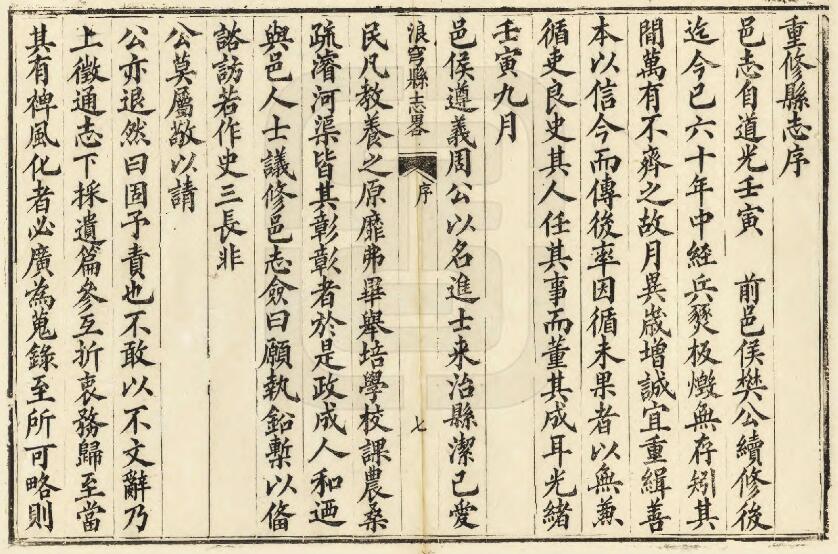 重修縣志序
邑志自道光壬寅　前邑侯樊公續修後
迄今已六十年中經兵燹板燬無存矧其
間萬有不齊之故月異歲增誠宜重緝善
本以信今而傳後率因循未果者以無兼
循吏良史其人任其事而董其成耳光緒
壬寅九月
邑侯遵義周公以名進士来治縣潔己愛
浪穹縣志畧　序　七
民凡教養之原靡弗畢舉培學校課農桑
疏濬河渠皆其彰彰者於是政成人和迺
與邑人士議修邑志僉曰願執鉛槧以俻
諮訪若作史三長非
公莫屬敬以請
公亦退然曰固予責也不敢以不文辭乃
上徵通志下採遺篇參互折衷務歸至當
其有裨風化者必廣為蒐錄至所可略則